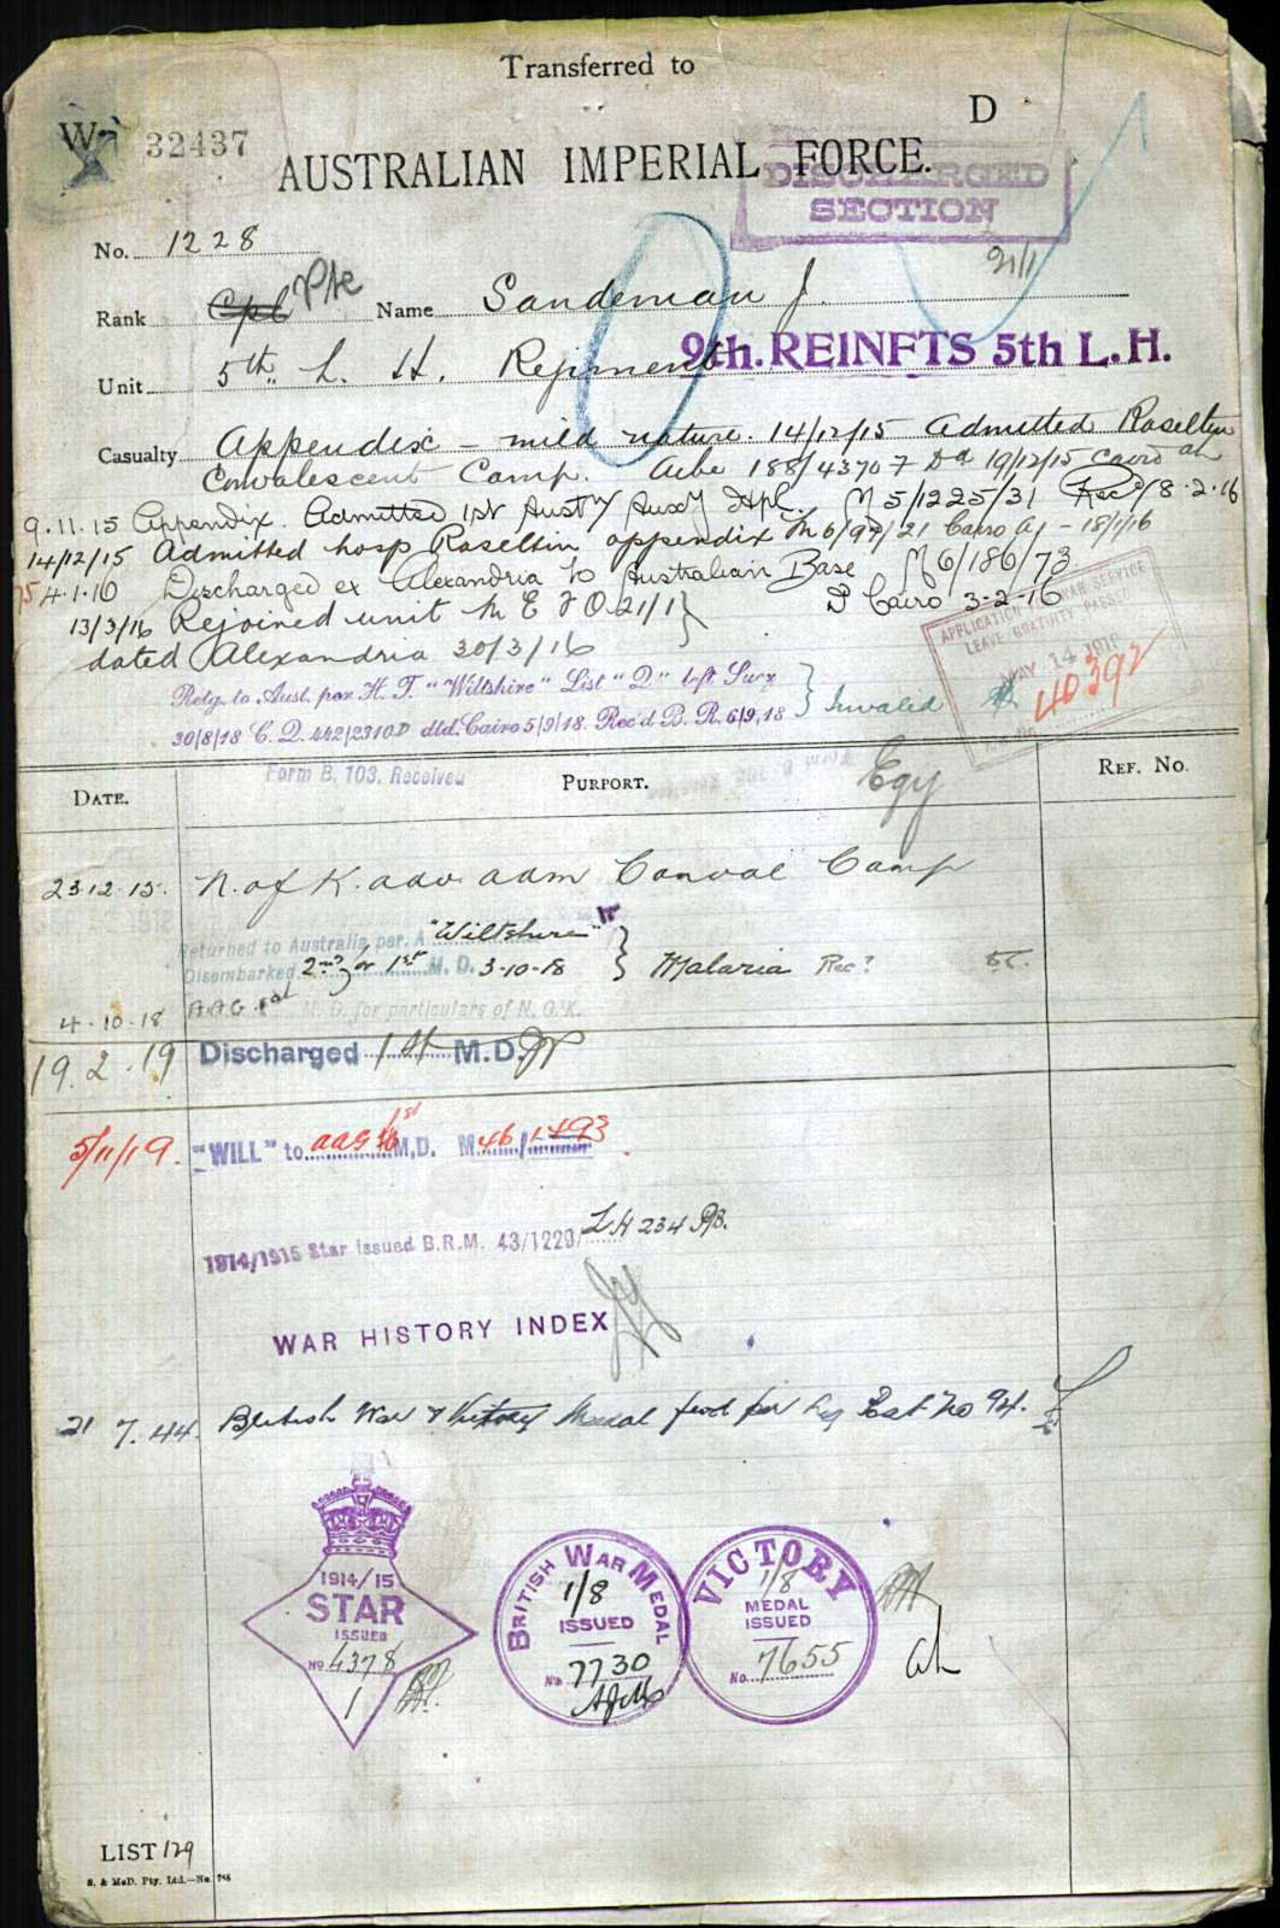 Transferred to
D
W 32437
AUSTRALIAN IMPERIAL FORCE.
DISCHARGED
SECTION
No. 1228
21/1
Rank Cpl Pte Name Sandeman J.
Unit 5th L. H. Regiment 9th. REINFTS 5th L. H.
Casualty Appendix - mild nature. 14/12/15 Admitted Roseltin
Convalescent Camp. 188/43707 Dd 19/12/15 Cairo
9.11.15 Appendix. Admitted 1st Aust Auxy Hpl. M 5/1225/31 Rec 18.2.16
14/12/15 Admitted hosp Roseltin appendix Cairo - 18/1/16
4.1.16 Discharged ex Alexandria to Australian Base M 6/186/73
D Cairo 3-2-16
13/3/16 Rejoined unit M E F O 21/1
dated Alexandria 30/3/16
APPLICATION WAR SERVICE
LEAVE GRATUITY PASSED
MAY 14 1919
40392
Retg. to Aust. per H. T. "Wiltshire" List "D" left Suez
30/8/18 C. D. 442/2310D dtd. Cairo 5/9/18. Rec'd B. R. 6/9/18 Invalid
Form B. 103. Received
Egy
DATE. PURPORT. REF. No.
23.12.15. N. of K. adv. adm Conval Camp
Returned to Australia per. "Wiltshire"
Disembarked 2nd or 1st M. D. 3-10-18 Malaria
4.10.18 A.A.G. M. D. for particulars of N. O. K.
19.2.19 Discharged 1st M.D.
5/11/19. "WILL" to AAG 1st M.D. M 46/1493
1914/1915 Star issued B.R.M. 43/1229/ LH 234
WAR HISTORY INDEX
21 7.44. British War & Victory Medal No 94.
1914/15
STAR
ISSUED
No 4378
1
BRITISH WAR MEDAL
1/8
ISSUED
No 7730
VICTORY
1/8
MEDAL
ISSUED
No. 7655
LIST 129
S. & McD. Pty. Ltd.—No.